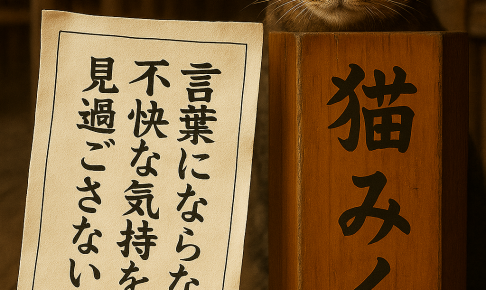 言葉にならな
不快な気持を
見過ごさない
猫み